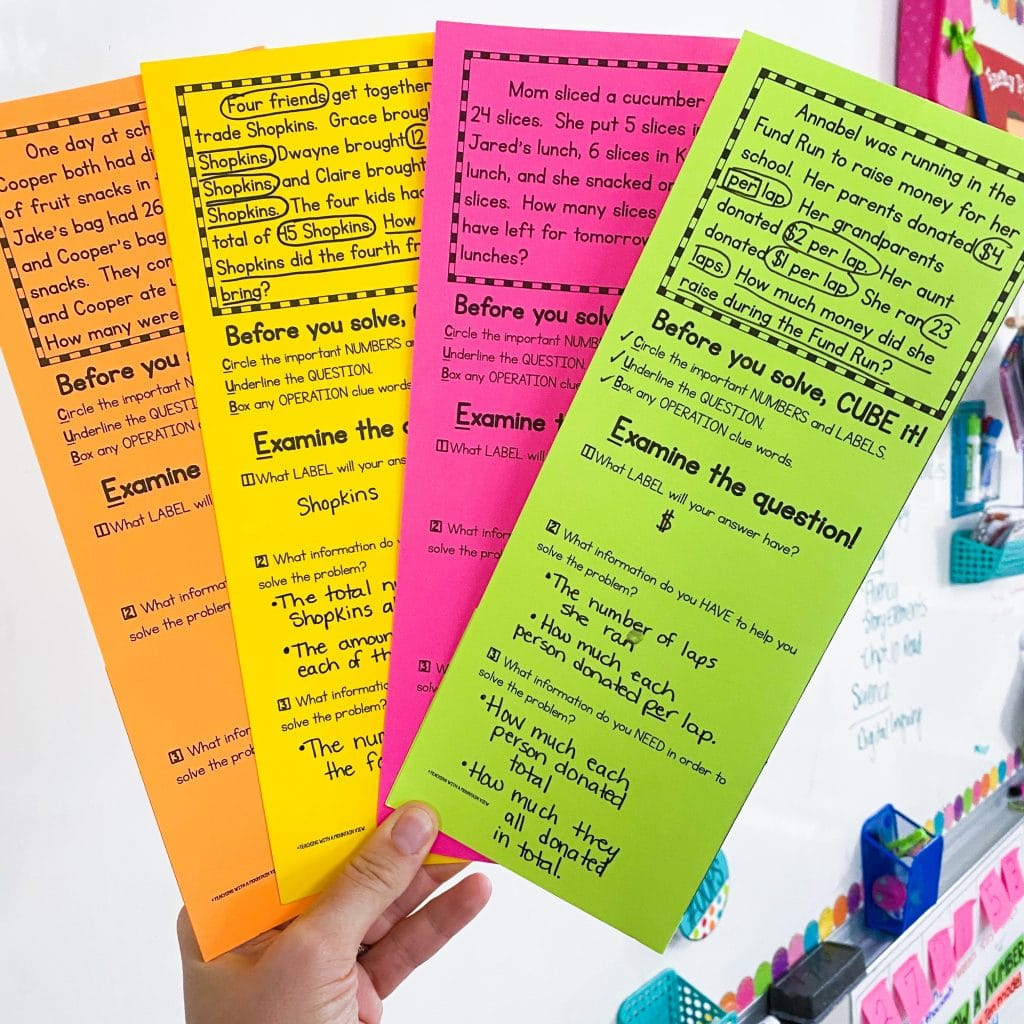 One day at sch
Cooper both had di
of fruit snacks in
Jake's bag had 26
and Cooper's bag
snacks. They com
and Cooper ate
How many were
Before you s
Circle the important N
Underline the QUESTION
Box any OPERATION
Examine
1 What LABEL will
2 What information
solve the problem
3 What infor
solve the
©TEACHING WITH A MOUNTAIN VIEW
Four friends get together
trade Shopkins. Grace brough
Shopkins, Dwayne brought 12
Shopkins, and Claire brought
Shopkins. The four kids had
total of 45 Shopkins. How
Shopkins did the fourth fr
bring?
Before you solve,
Circle the important NUMBERS a
Underline the QUESTION.
Box any OPERATION clue words
Examine the
1 What LABEL will your ans
Shopkins
2 What information do
solve the problem?
•The total n
Shopkins a
•The amoun
each of th
3 What informatio
solve the problem?
•The num
the fo
©TEACHING WITH A MOUNTAIN VIEW
Mom sliced a cucumber
24 slices. She put 5 slices in
Jared's lunch, 6 slices in K
lunch, and she snacked on
slices. How many slices
have left for tomorrow
lunches?
Before you solv
Circle the important NUMB
Underline the QUESTION.
Box any OPERATION clue
Examine t
1 What LABEL will
2 What inform
solve the pro
3 Wha
solve
Annabel was running in the
Fund Run to raise money for her
school. Her parents donated $4
per lap. Her grandparents
donated $2 per lap. Her aunt
donated $1 per lap. She ran 23
laps. How much money did she
raise during the Fund Run?
Before you solve, CUBE it!
✓Circle the important NUMBERS and LABELS.
✓Underline the QUESTION.
✓Box any OPERATION clue words.
Examine the question!
1 What LABEL will your answer have?
$
2 What information do you HAVE to help you
solve the problem?
•The number of laps
she ran
•How much each
person donated per lap.
3 What information do you NEED in order to
solve the problem?
•How much each
person donated
total
•How much they
all donated
in total.
©TEACHING WITH A MOUNTAIN VIEW
Fluency
Story Elements
Science